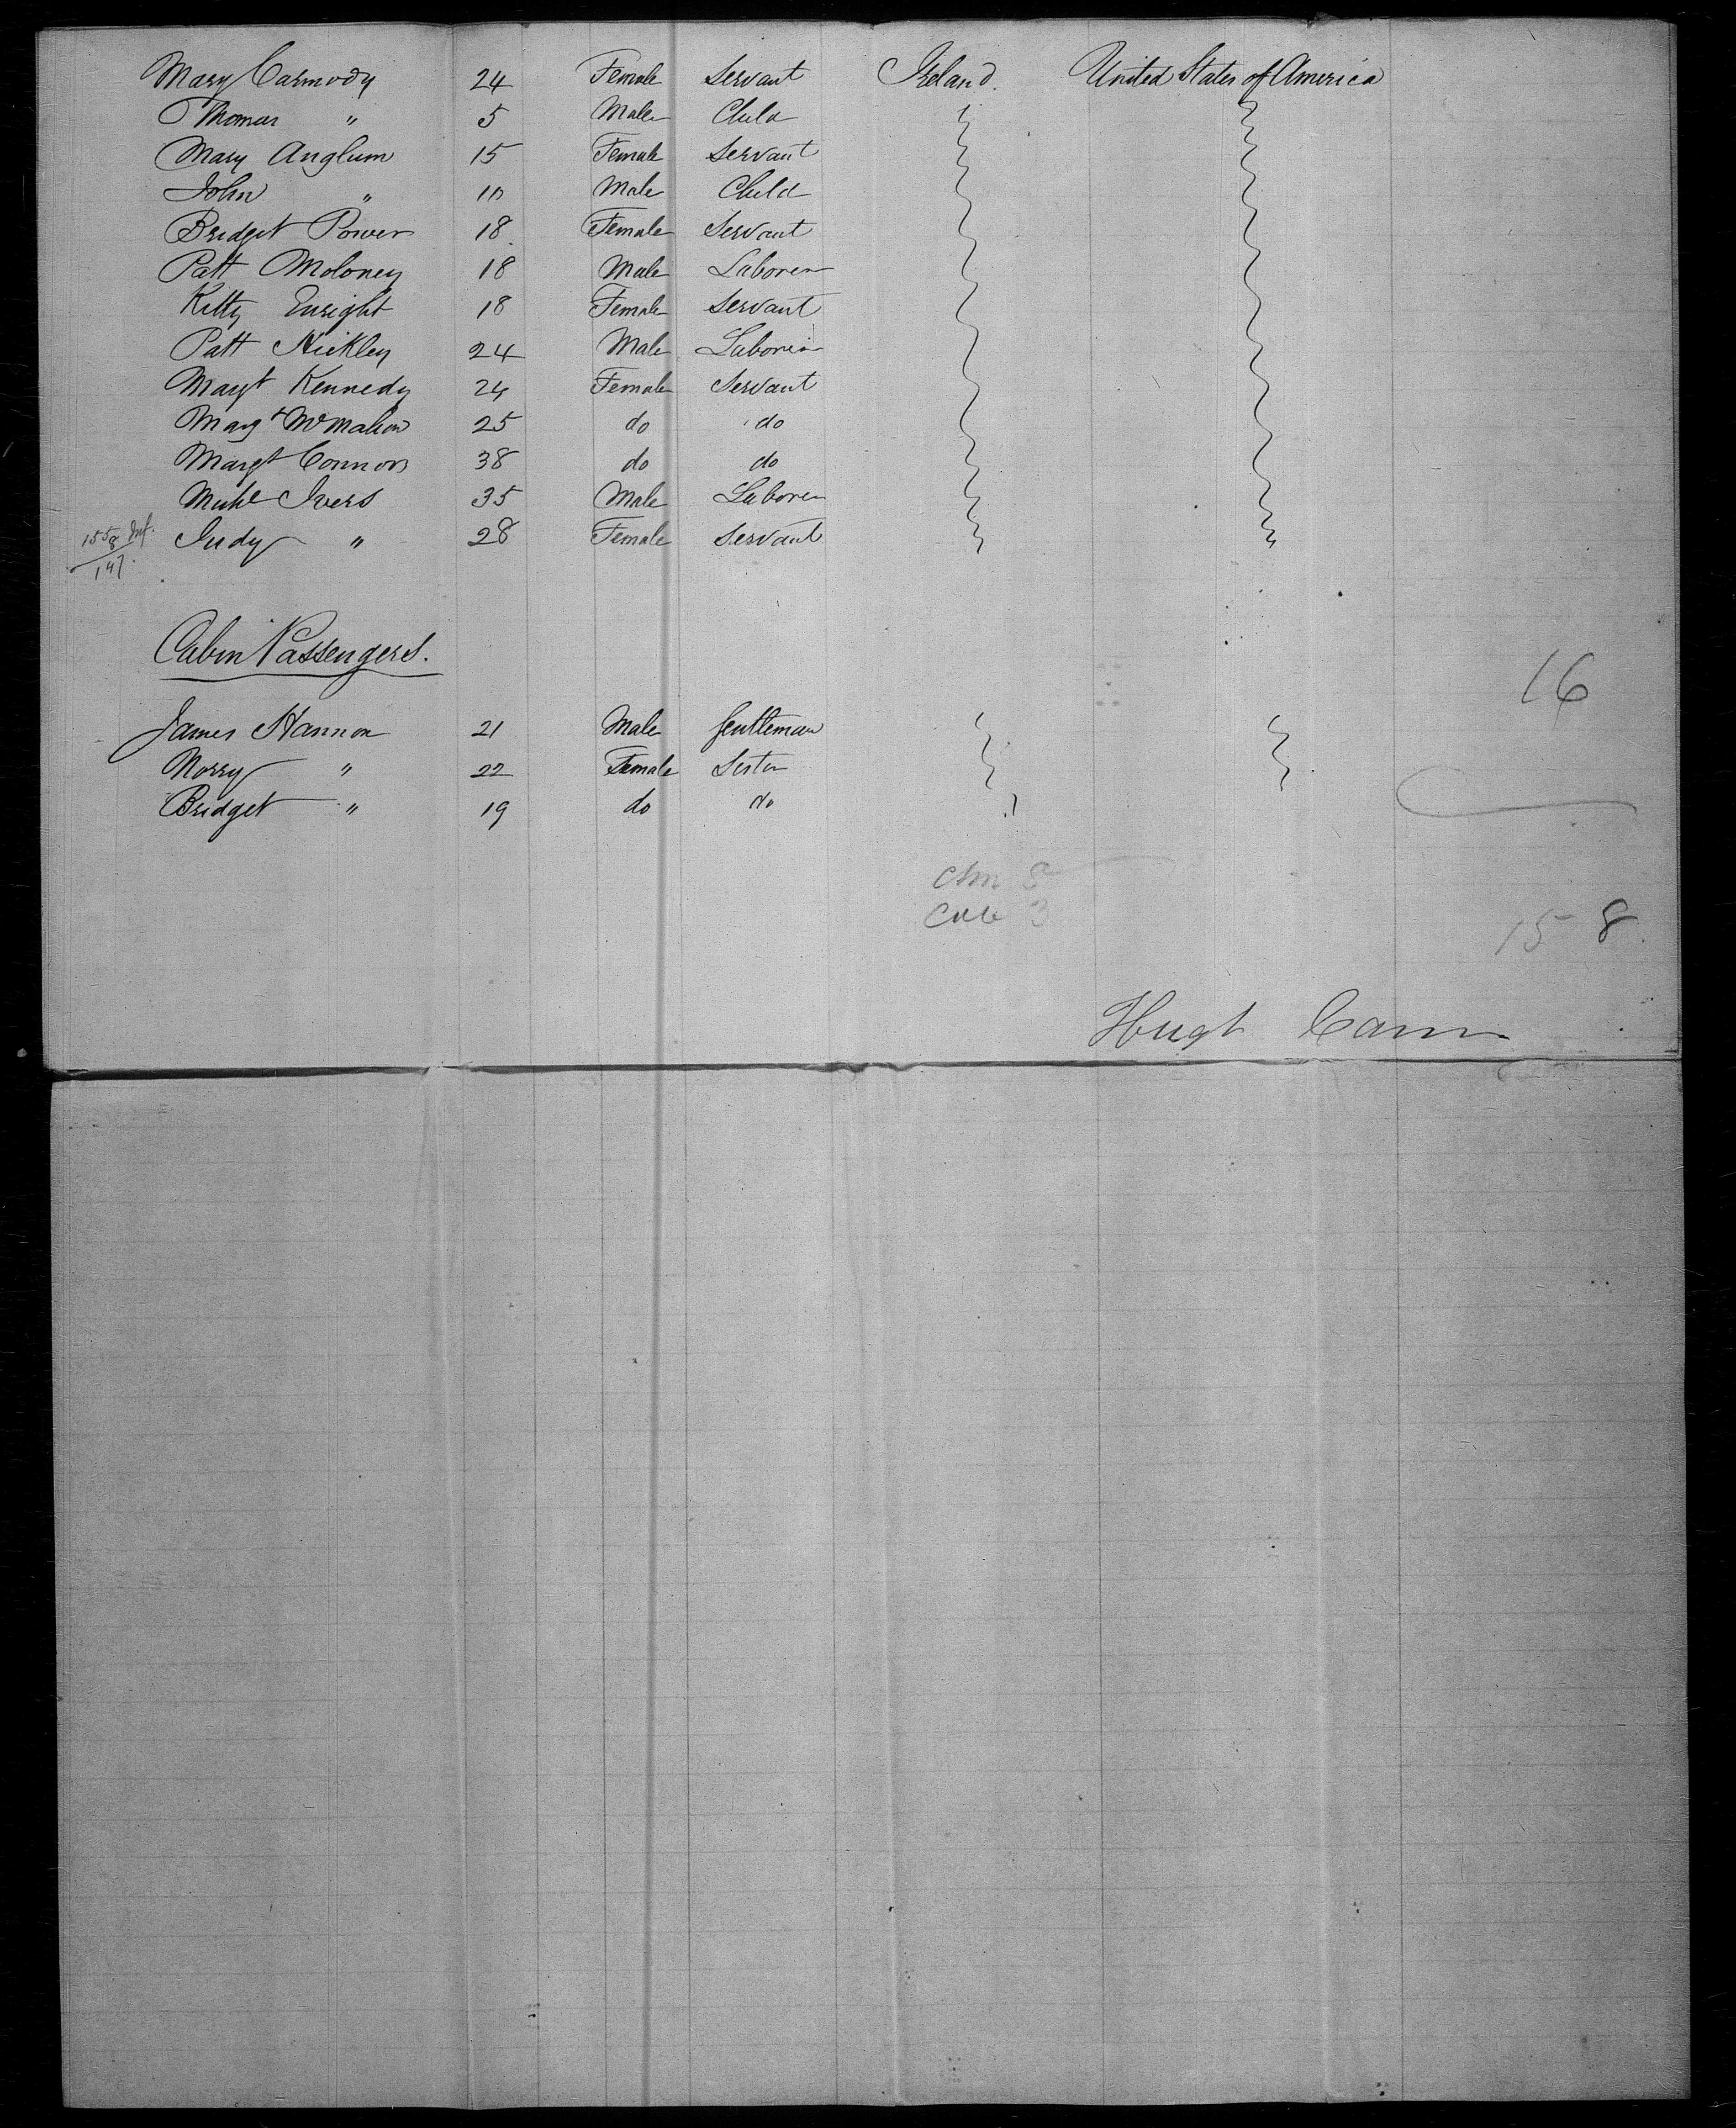 Mary Carmody 24 Female Servant Ireland. United States of America
Thomas " 5 Male Child
Mary Anglum 15 Female Servant
John " 10 Male Child
Bridget Power 18 Female Servant
Patt Moloney 18 Male Laborer
Kitty Enright 18 Female Servant
Patt Hickley 24 Male Laborer
Margt Kennedy 24 Female Servant
Margt McMahon 25 do do
Margt Connors 38 do do
Michl Ivers 35 Male Laborer
155 Judy " 28 Female Servant
8 Inf.
147
Cabin Passengers.
16
James Hannon 21 Male Gentleman
Norry " 22 Female Sister
Bridget " 19 do do
8
Cab 3
158
Hugh Cann